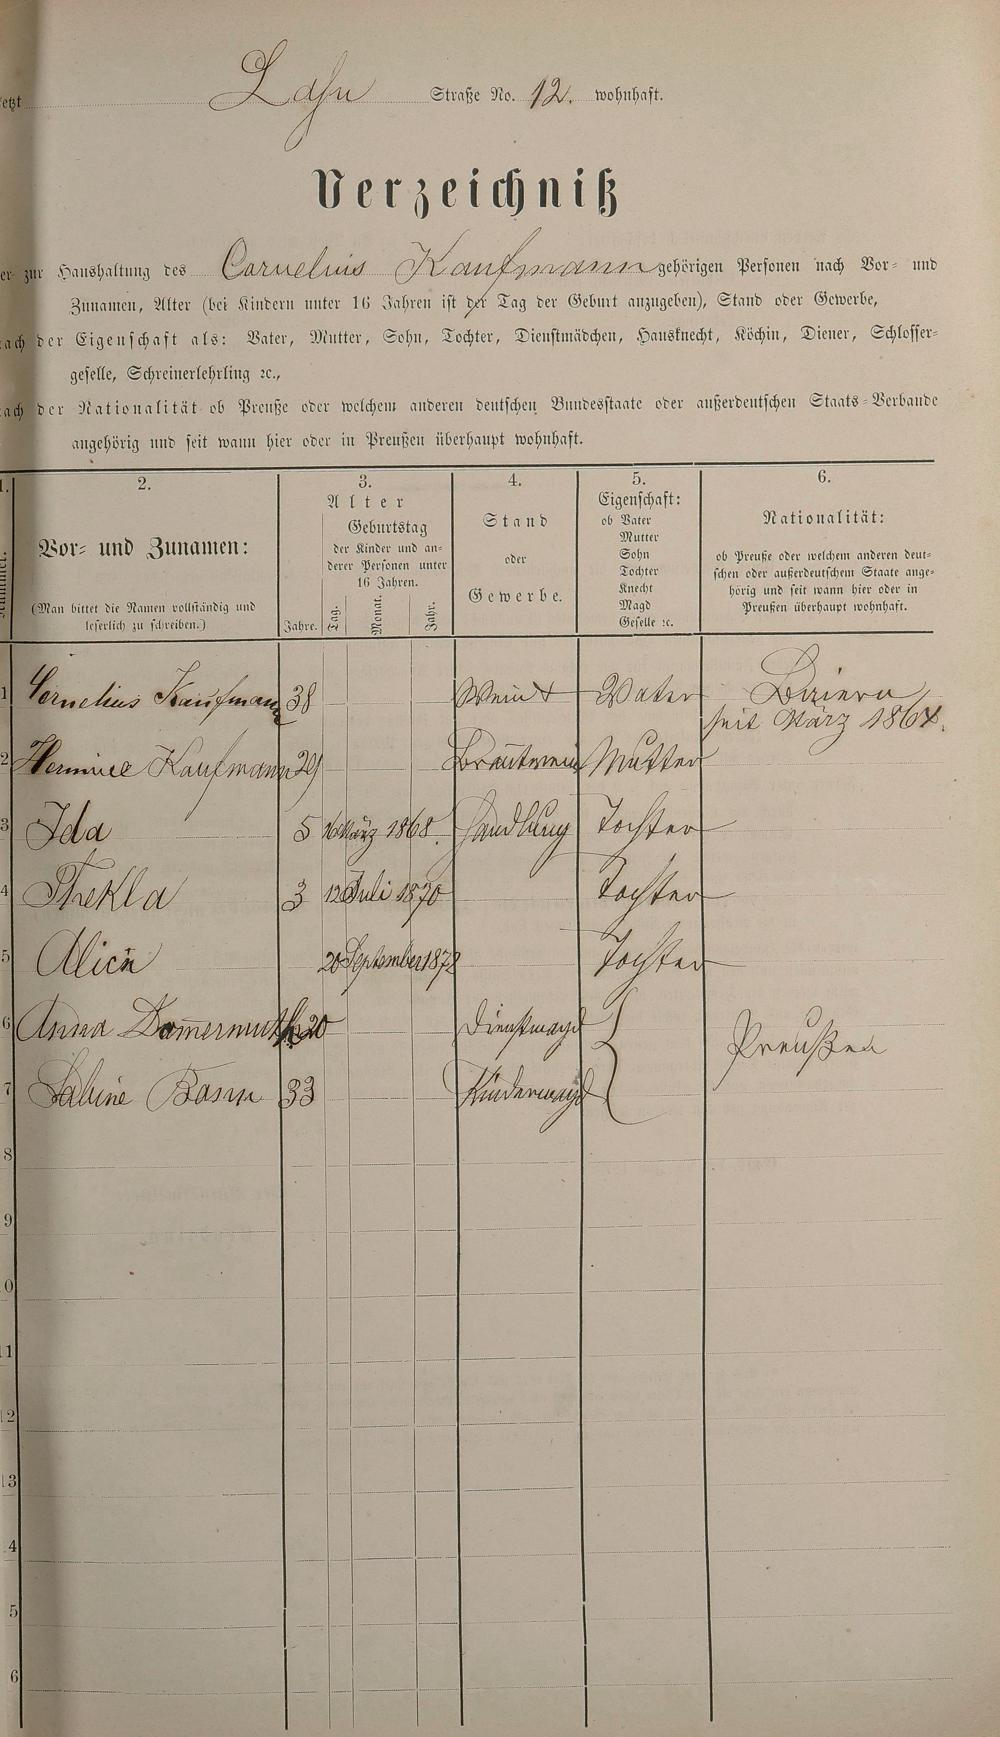 etzt Lahn Straße No. 12. wohnhaft.
Verzeichniß
er zur Haushaltung des Cornelius Kaufmann gehörigen Personen nach Vor- und
Zunamen, Alter (bei Kindern unter 16 Jahren ist der Tag der Geburt anzugeben), Stand oder Gewerbe,
ach der Eigenschaft als: Vater, Mutter, Sohn, Tochter, Dienstmädchen, Hausknecht, Köchin, Diener, Schlosser-
geselle, Schreinerlehrling ꝛc.,
ach der Nationalität ob Preuße oder welchem anderen deutschen Bundesstaate oder außerdeutschen Staats-Verbande
angehörig und seit wann hier oder in Preußen überhaupt wohnhaft.
1. 2. 3. 4. 5. 6.
Nummer.
Vor- und Zunamen:
(Man bittet die Namen vollständig und
leserlich zu schreiben.)
Alter
Jahre.
Geburtstag
der Kinder und an-
derer Personen unter
16 Jahren.
Tag. Monat. Jahr.
Stand
oder
Gewerbe.
Eigenschaft:
ob Vater
Mutter
Sohn
Tochter
Knecht
Magd
Geselle ꝛc.
Nationalität:
ob Preuße oder welchem anderen deut-
schen oder außerdeutschem Staate ange-
hörig und seit wann hier oder in
Preußen überhaupt wohnhaft.
1 Cornelius Kaufmann 38 Wein + Vater Baiern
seit März 1864.
2 Hermine Kaufmann 29 Brantwein Mutter
3 Ida 5 16 März 1868. Handlung Tochter
4 Thekla 3 12 Juli 1870 Tochter
5 Alice 20 September 1872 Tochter
6 Anna Damermuth 20 Dienstmagd Preußen
7 Sabine Basm 33 Kindermagd
8
9
0
11
12
13
4
5
6